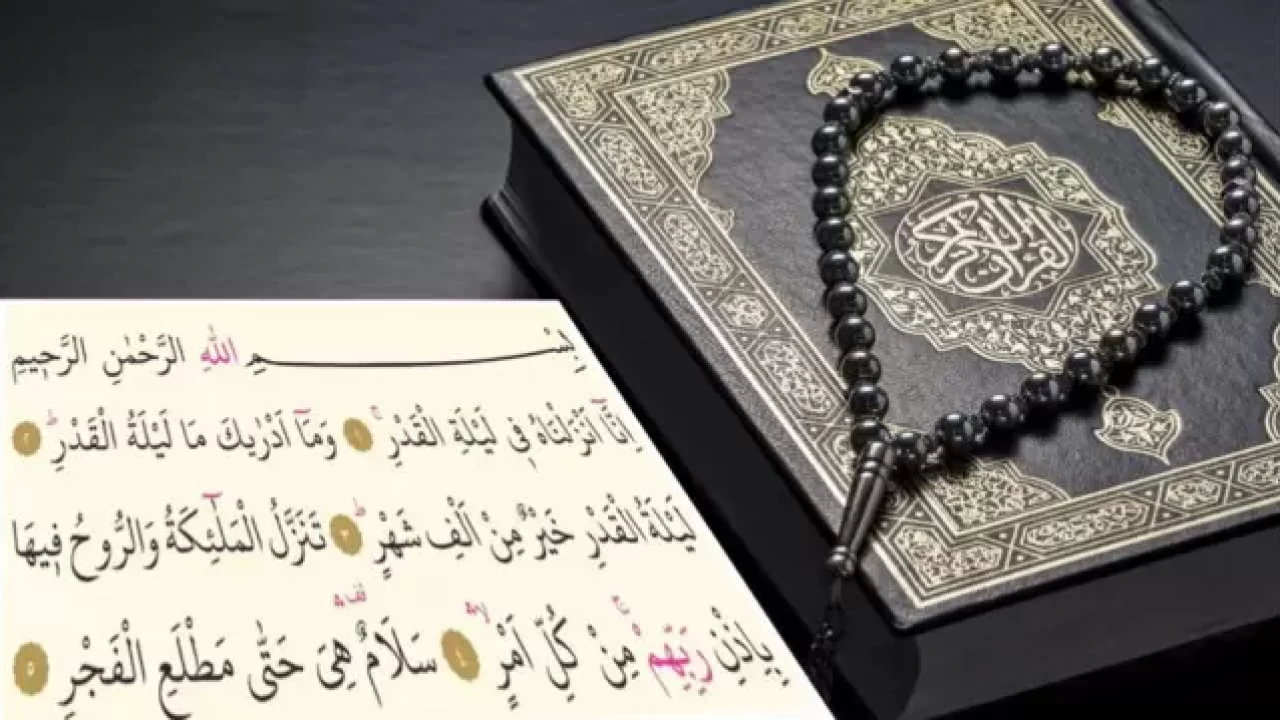 القرآن الكريم
بِسْــــــــمِ اللّٰهِ الرَّحْمٰنِ الرَّحٖيمِ
اِنَّٓا اَنْزَلْنَاهُ فٖي لَيْلَةِ الْقَدْرِۚ ﴿١﴾ وَمَٓا اَدْرٰيكَ مَا لَيْلَةُ الْقَدْرِۜ ﴿٢﴾
لَيْلَةُ الْقَدْرِ خَيْرٌ مِنْ اَلْفِ شَهْرٍۜ ﴿٣﴾ تَنَزَّلُ الْمَلٰٓئِكَةُ وَالرُّوحُ فٖيهَا
بِاِذْنِ رَبِّهِمْۚ مِنْ كُلِّ اَمْرٍۙ ﴿٤﴾ سَلَامٌ۠ هِيَ حَتّٰى مَطْلَعِ الْفَجْرِ ﴿٥﴾